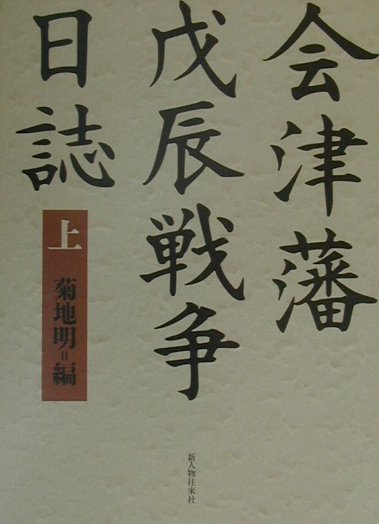 会津藩
戊辰戦争
日誌
上
菊地明=編
新人物往来社